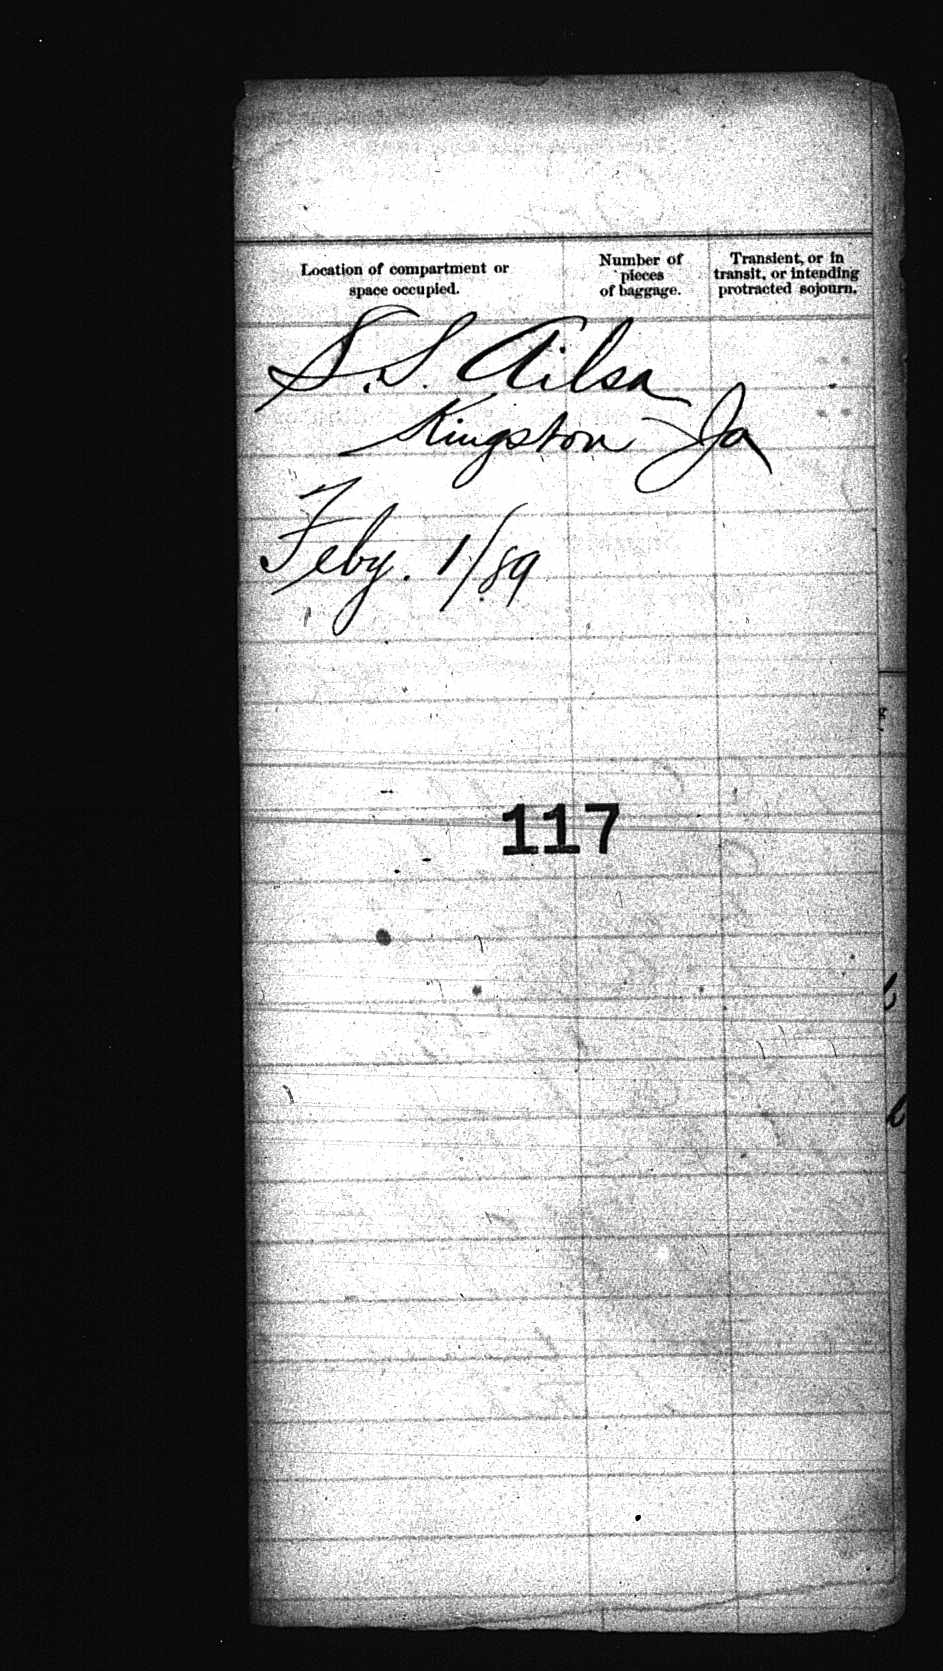 Location of compartment or
space occupied.
Number of
pieces
of baggage.
Transient, or in
transit, or intending
protracted sojourn.
S.S. Ailsa
Kingston Ja
Feby. 1/89
117